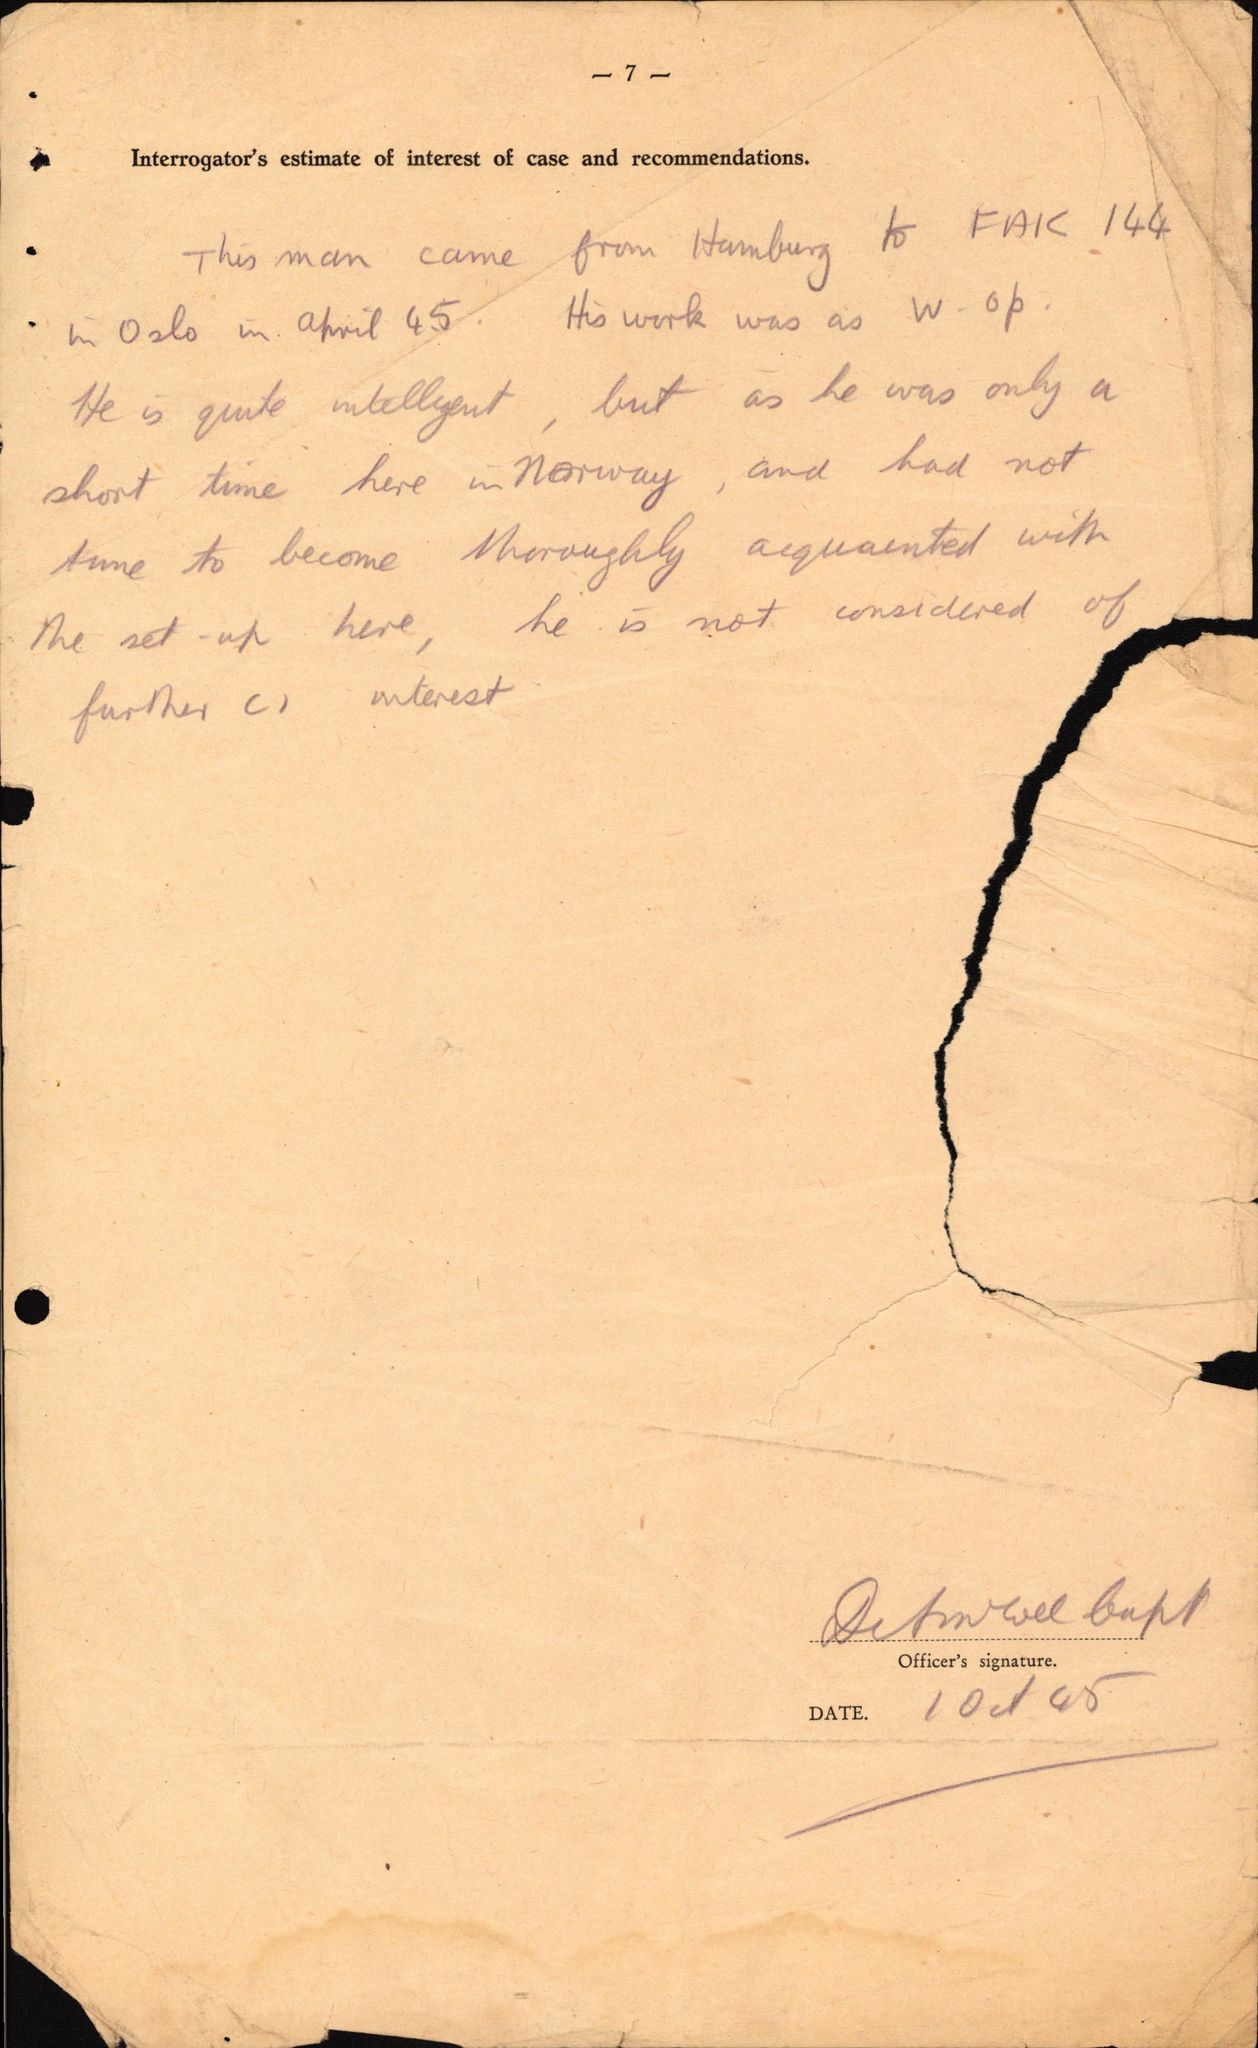 — 7 —
Interrogator's estimate of interest of case and recommendations.
This man came from Hamburg to FAK 144
in Oslo in April 45. His work was as W-op.
He is quite intelligent, but as he was only a
short time here in Norway, and had not
time to become thoroughly acquainted with
the set-up here, he is not considered of
further CI interest
Capt
Officer's signature.
DATE. 1 Oct 45